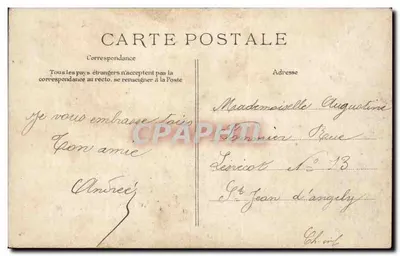 CARTE POSTALE
Correspondance
Tous les pays étrangers n'acceptent pas la
correspondance au recto. se renseigner à la Poste
Je vous embrasse tous
Ton amie
Andrée
Adresse
Mademoiselle Augustine
Rue
N° 13
St Jean d'angely
Ch inf
CPAPHIL